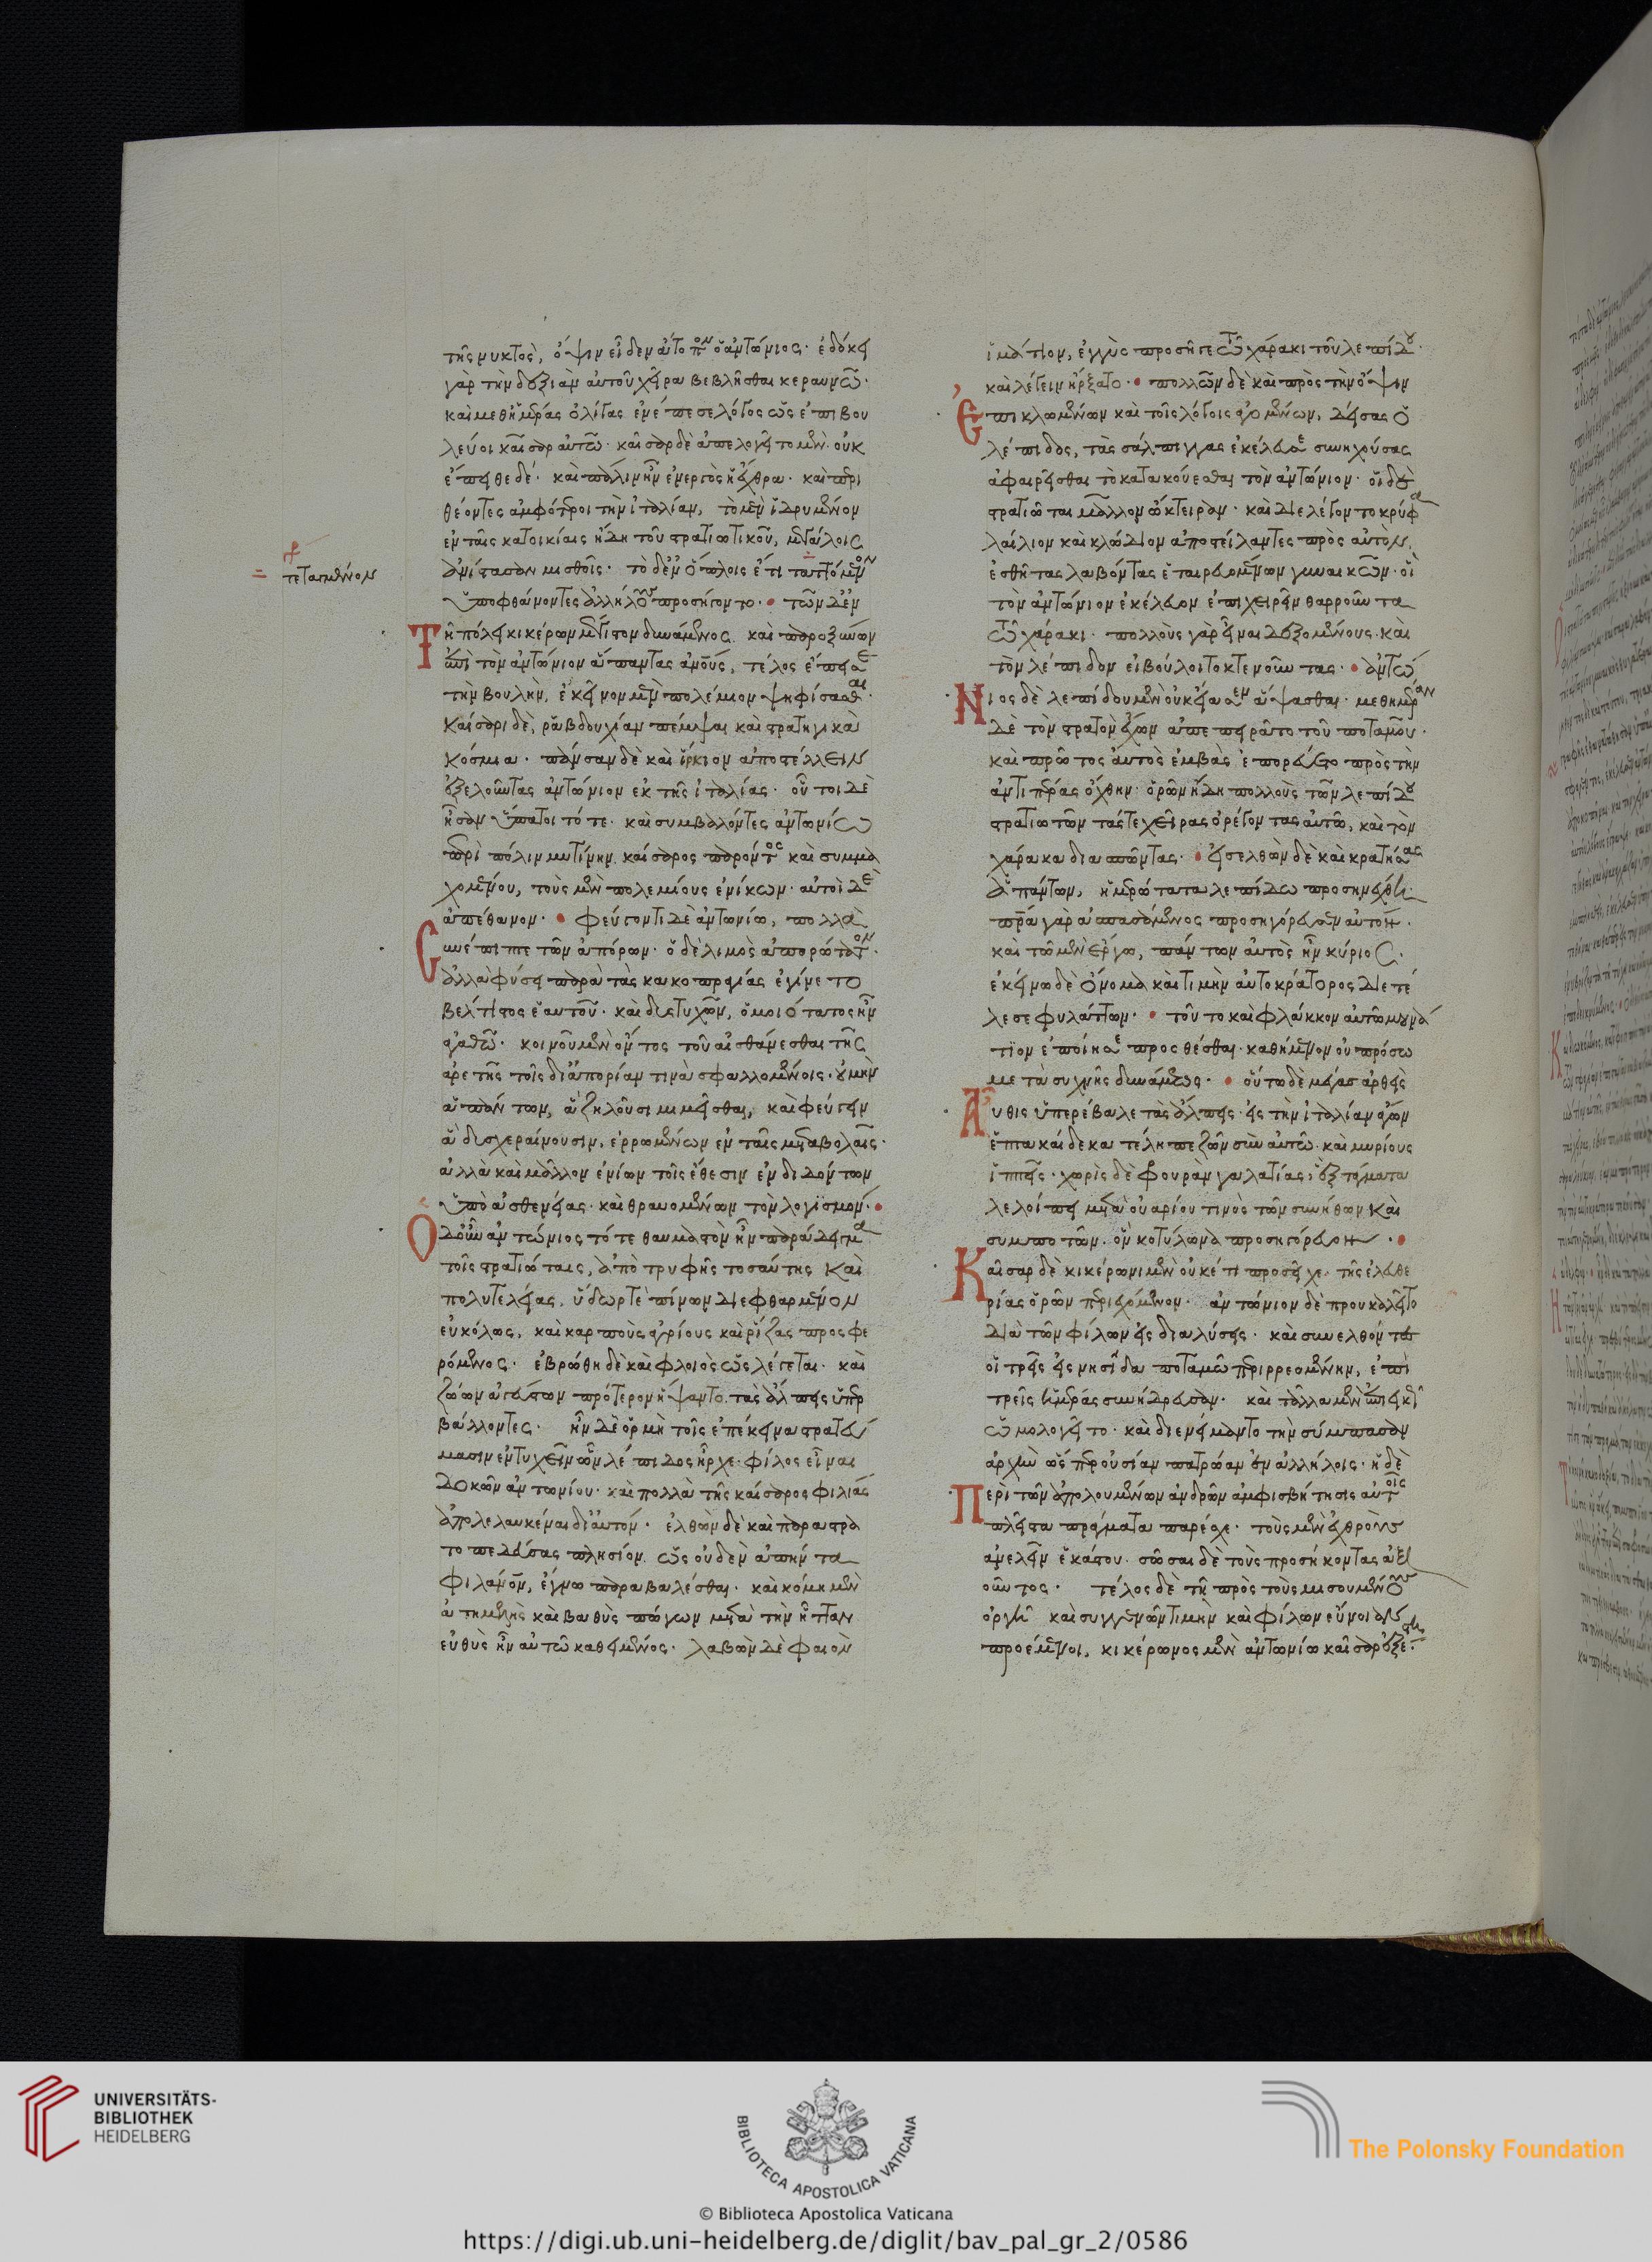 τῆς νυκτὸς, ὄψιν εἶδεν ἄτοπον ὁ ἀντώνιος· ἐδόκει
γὰρ τὴν δεξιὰν αὐτοῦ χεῖρα βεβλῆσθαι κεραυνῶ·
καὶ μεθ' ἡμέρας ὀλίγας ἐνέπεσε λόγος ὡς ἐπιβου
λεύοι καῖσαρ αὐτῶ· καῖσαρ δὲ ἀπελογεῖτο μὲν· οὐκ
ἔπειθε δέ· καὶ πάλιν ἦν ἐνεργὸς ἡ ἔχθρα· καὶ περι
θέοντες ἀμφότεροι τὴν ἰταλίαν, τὸ μὲν ἱδρυμένον
ἐν ταῖς κατοικίαις ἤδη τοῦ στρατιωτικοῦ, μεγάλοις
ἀνίστασαν μισθοῖς· τὸ δ' ἐν ὅπλοις ἔτι ταττόμενον
τεταγμένον
ὑποφθάνοντες ἀλλήλους προσήγοντο· τῶν δ' ἐν
Τῆ πόλει κικέρων μέγιστον δυνάμενος καὶ παροξύνων
ἐπὶ τὸν ἀντώνιον ἅπαντας ἀνθρώπους, τέλος ἔπεισε
τὴν βουλὴν, ἐκεῖνον μὲν πολέμιον ψηφίσασθαι·
καίσαρι δὲ, ῥαβδουχίαν πέμψαι καὶ στρατηγικὰ
κόσμια· πάνσαν δὲ καὶ ἵρκιον ἀποστέλλειν
ἐξελοῦντας ἀντώνιον ἐκ τῆς ἰταλίας· οὗτοι δὲ
ἦσαν ὕπατοι τότε· καὶ συμβαλόντες ἀντωνίω
περὶ πόλιν μυτίνην καίσαρος παρόντος καὶ συμμα
χομένου, τοὺς μὲν πολεμίους ἐνίκων· αὐτοὶ δὲ
ἀπέθανον· φεύγοντι δὲ ἀντωνίω, πολλὰ
Συνέπιπτε τῶν ἀπόρων· ὁ δὲ λιμὸς ἀπορώτατον·
ἀλλὰ φύσει παρὰ τὰς κακοπραγίας ἐγίνετο
βέλτιστος ἑαυτοῦ· καὶ δυστυχῶν, ὁμοιότατος ἦν
ἀγαθῶ· κοινοῦ μὲν ὄντος τοῦ αἰσθάνεσθαι τῆς
ἀρετῆς τοῖς δι' ἀπορίαν τινὰ σφαλλομένοις· οὐ μὴν
ἁπάντων, ἃ ζηλοῦσι μιμεῖσθαι, καὶ φεύγειν
ἃ δυσχεραίνουσιν, ἐρρωμένων ἐν ταῖς μεταβολαῖς·
ἀλλὰ καὶ μᾶλλον ἐνίων τοῖς ἔθεσιν ἐνδιδόντων
ὑπὸ ἀσθενείας· καὶ θραυομένων τὸν λογισμόν·
Ὁ δ' οὖν ἀντώνιος τότε θαυμαστὸν ἦν παράδειγμα
τοῖς στρατιώταις, ἀπὸ τρυφῆς τοσαύτης καὶ
πολυτελείας, ὕδωρ τὲ πίνων διεφθαρμένον
εὐκόλως, καὶ καρποὺς ἀγρίους καὶ ῥίζας προσφε
ρόμενος· ἐβρώθη δὲ καὶ φλοιὸς ὡς λέγεται· καὶ
ζώων ἀγεύστων πρότερον ἥψαντο τὰς ἄλπεις ὑπερ
βάλλοντες· ἦν δὲ ὁρμὴ τοῖς ἐπέκεινα στρατεύ
μασιν ἐντυχεῖν ὧν λέπιδος ἦρχε· φίλος εἶναι
δοκῶν ἀντωνίου· καὶ πολλὰ τῆς καίσαρος φιλίας
ἀπολελαυκέναι δι' αὐτόν· ἐλθὼν δὲ καὶ παραστρα
τοπεδεύσας πλησίον ὡς οὐδὲν ἀπήντα
φιλάνθρωπον, ἔγνω παραβαλέσθαι· καὶ κόμη μὲν
ἀτημελὴς καὶ βαθὺς πώγων μετὰ τὴν ἧτταν
εὐθὺς ἦν αὐτῶ καθειμένος· λαβὼν δὲ φαιὸν
ἱμάτιον, ἐγγὺς προσῆγε τῶ χάρακι τοῦ λεπίδου·
καὶ λέγειν ἤρξατο· πολλῶν δὲ καὶ πρὸς τὴν ὄψιν
Ἐπικλωμένων καὶ τοῖς λόγοις ἀγομένων, δείσας ὁ
λέπιδος, τὰς σάλπιγγας ἐκέλευσε συνηχούσας
ἀφαιρεῖσθαι τὸ κατακούεσθαι τὸν ἀντώνιον· οἱ δὲ
στρατιῶται μᾶλλον ὤκτειραν· καὶ διελέγοντο κρύφα
λαίλιον καὶ κλώδιον ἀποστείλαντες πρὸς αὐτὸν
ἐσθῆτας λαβόντας ἑταιρευομένων γυναικῶν· οἳ
τὸν ἀντώνιον ἐκέλευον ἐπιχειρεῖν θαρροῦντα
τῶ χάρακι· πολλοὺς γὰρ εἶναι δεξομένους καὶ
τὸν λέπιδον εἰ βούλοιτο κτενοῦντας· ἀντώ
Νιος δὲ λεπίδου μὲν οὐκ εἴασεν ἅψασθαι· μεθ' ἡμέραν
δὲ τὸν στρατὸν ἔχων ἀπεπειρᾶτο τοῦ ποταμοῦ·
καὶ πρῶτος αὐτὸς ἐμβὰς ἐπορεύετο πρὸς τὴν
ἀντιπέρας ὄχθην· ὁρῶν ἤδη πολλοὺς τῶν λεπίδου
στρατιωτῶν τάς τε χεῖρας ὀρέγοντας αὐτῶ, καὶ τὸν
χάρακα διασπῶντας· εἰσελθὼν δὲ καὶ κρατήσας
ἁπάντων, ἡμερώτατα λεπίδω προσηνέχθη·
πατέρα γὰρ ἀσπασάμενος προσηγόρευσεν αὐτὸν·
καὶ τῶ μὲν ἔργω, πάντων αὐτὸς ἦν κύριος·
ἐκείνω δὲ ὄνομα καὶ τιμὴν αὐτοκράτορος διετέ
λεσε φυλάττων· τοῦτο καὶ φλάκκον αὐτῶ μουνά
τιον ἐποίησε προσθέσθαι· καθήμενον οὐ πρόσω
μετὰ συχνῆς δυνάμεως· οὕτω δὲ μέγας ἀρθεὶς
Αὖθις ὑπερέβαλε τὰς ἄλπεις· εἰς τὴν ἰταλίαν ἄγων
ἑπτακαίδεκα τέλη πεζῶν σὺν αὐτῶ καὶ μυρίους
ἱππεῖς· χωρὶς δὲ φουρὰν γαλατίας, ἓξ τάγματα
λελοίπει μετὰ οὐαρίου τινὸς τῶν συνήθων καὶ
συμποτῶν. ὃν κοτύλωνα προσηγόρευον·
Καῖσαρ δὲ κικέρωνι μὲν οὐκέτι προσεῖχε, τῆς ἐλευθε
ρίας ὁρῶν περιεχόμενον· ἀντώνιον δὲ προυκαλεῖτο
διὰ τῶν φίλων εἰς διαλύσεις· καὶ συνελθόντες
οἱ τρεῖς εἰς νησῖδα ποταμῶ περιρρεομένην, ἐπὶ
τρεῖς ἡμέρας συνήδρευσαν· καὶ τἆλλα μὲν ἐπιεικῶς
ὡμολογεῖτο· καὶ διενείμαντο τὴν σύμπασαν
ἀρχὴν ὥσπερ οὐσίαν πατρώαν ἐν ἀλλήλοις· ἡ δὲ
Περὶ τῶν ἀπολουμένων ἀνδρῶν ἀμφισβήτησις αὐτοῖς
πλεῖστα πράγματα παρέσχε· τοὺς μὲν ἐχθροὺς
ἀνελεῖν ἑκάστου· σῶσαι δὲ τοὺς προσήκοντας ἀξι
οῦντος· τέλος δὲ τῆ πρὸς τοὺς μισουμένους
ὀργῆ καὶ συγγενῶν τιμὴν καὶ φίλων εὔνοιαν
προέμενοι, κικέρωνος μὲν ἀντωνίω καῖσαρ ἐξέστη·
UNIVERSITÄTS-
BIBLIOTHEK
HEIDELBERG
BIBLIOTECA APOSTOLICA VATICANA
The Polonsky Foundation
© Biblioteca Apostolica Vaticana
https://digi.ub.uni-heidelberg.de/diglit/bav_pal_gr_2/0586